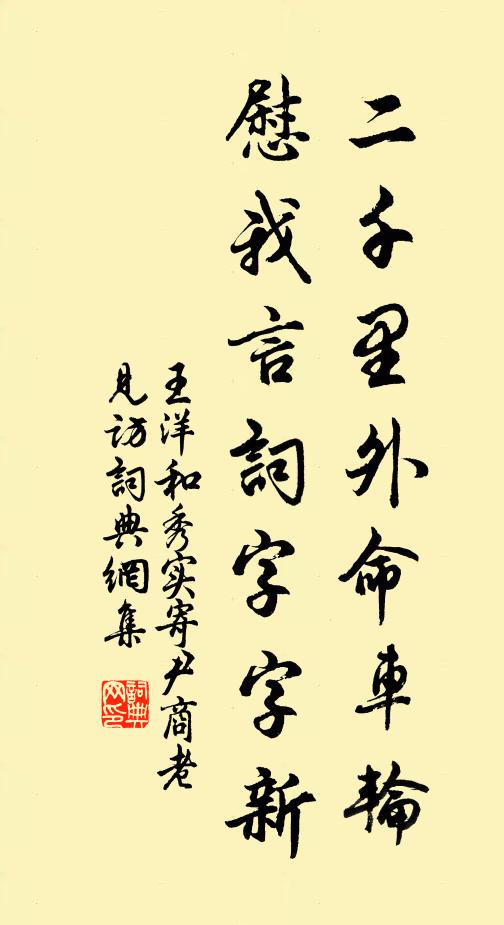 二千里外命車輪
慰我言詞字字新
王洋和秀实寄尹商老
見访詞典網集
詞典
网印